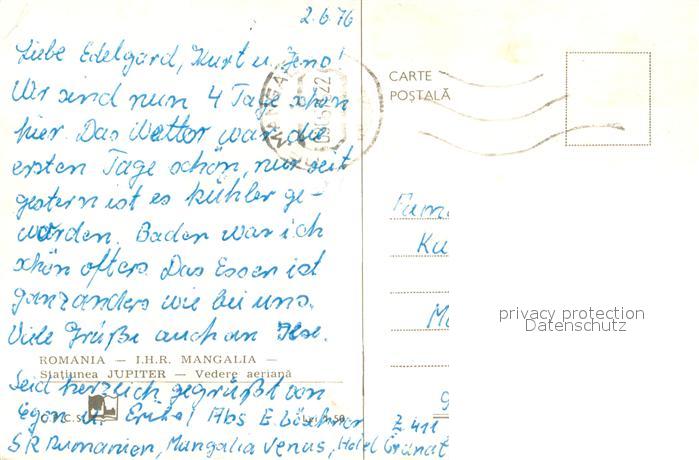 2.6.76
Liebe Edelgard, Kurt u. Jens!
Wir sind nun 4 Tage schon
hier. Das Wetter war die
ersten Tage schön, nur seit
gestern ist es kühler ge-
worden. Baden war ich
schön öfters. Das Essen ist
ganz anders wie bei uns.
Viele Grüße auch an Ilse.
ROMANIA — I.H.R. MANGALIA —
Stațiunea JUPITER — Vedere aeriană
Seid herzlich gegrüßt von
Egon u. Erika! Abs E. Z 411
SR Rumanien, Mangalia Venus, Hotel Granat
CARTE
POȘTALĂ
MANGALIA
Fam.
Ku
M
privacy protection
Datenschutz